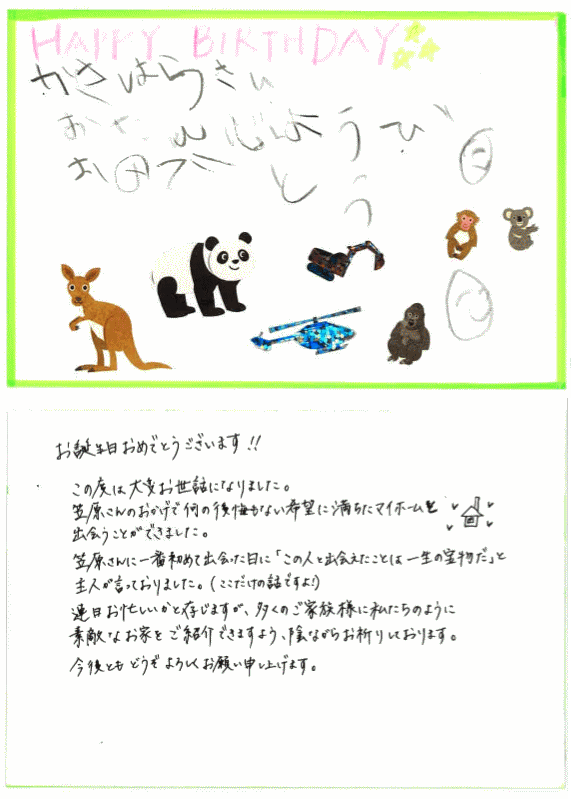 HAPPY BIRTHDAY
かさはらさん
おたんじょうび
おめでとう
お誕生日おめでとうございます!!
この度は大変お世話になりました。
笠原さんのおかげで何の後悔もない希望に満ちたマイホームを
出会うことができました。
笠原さんに一番初めて出会った日に「この人と出会えたことは一生の宝物だ」と
主人が言っておりました。(ここだけの話ですよ!)
連日お忙しいかと存じますが、多くのご家族様に私たちのように
素敵なお家をご紹介できますよう、陰ながらお祈りしております。
今後ともどうぞよろしくお願い申し上げます。